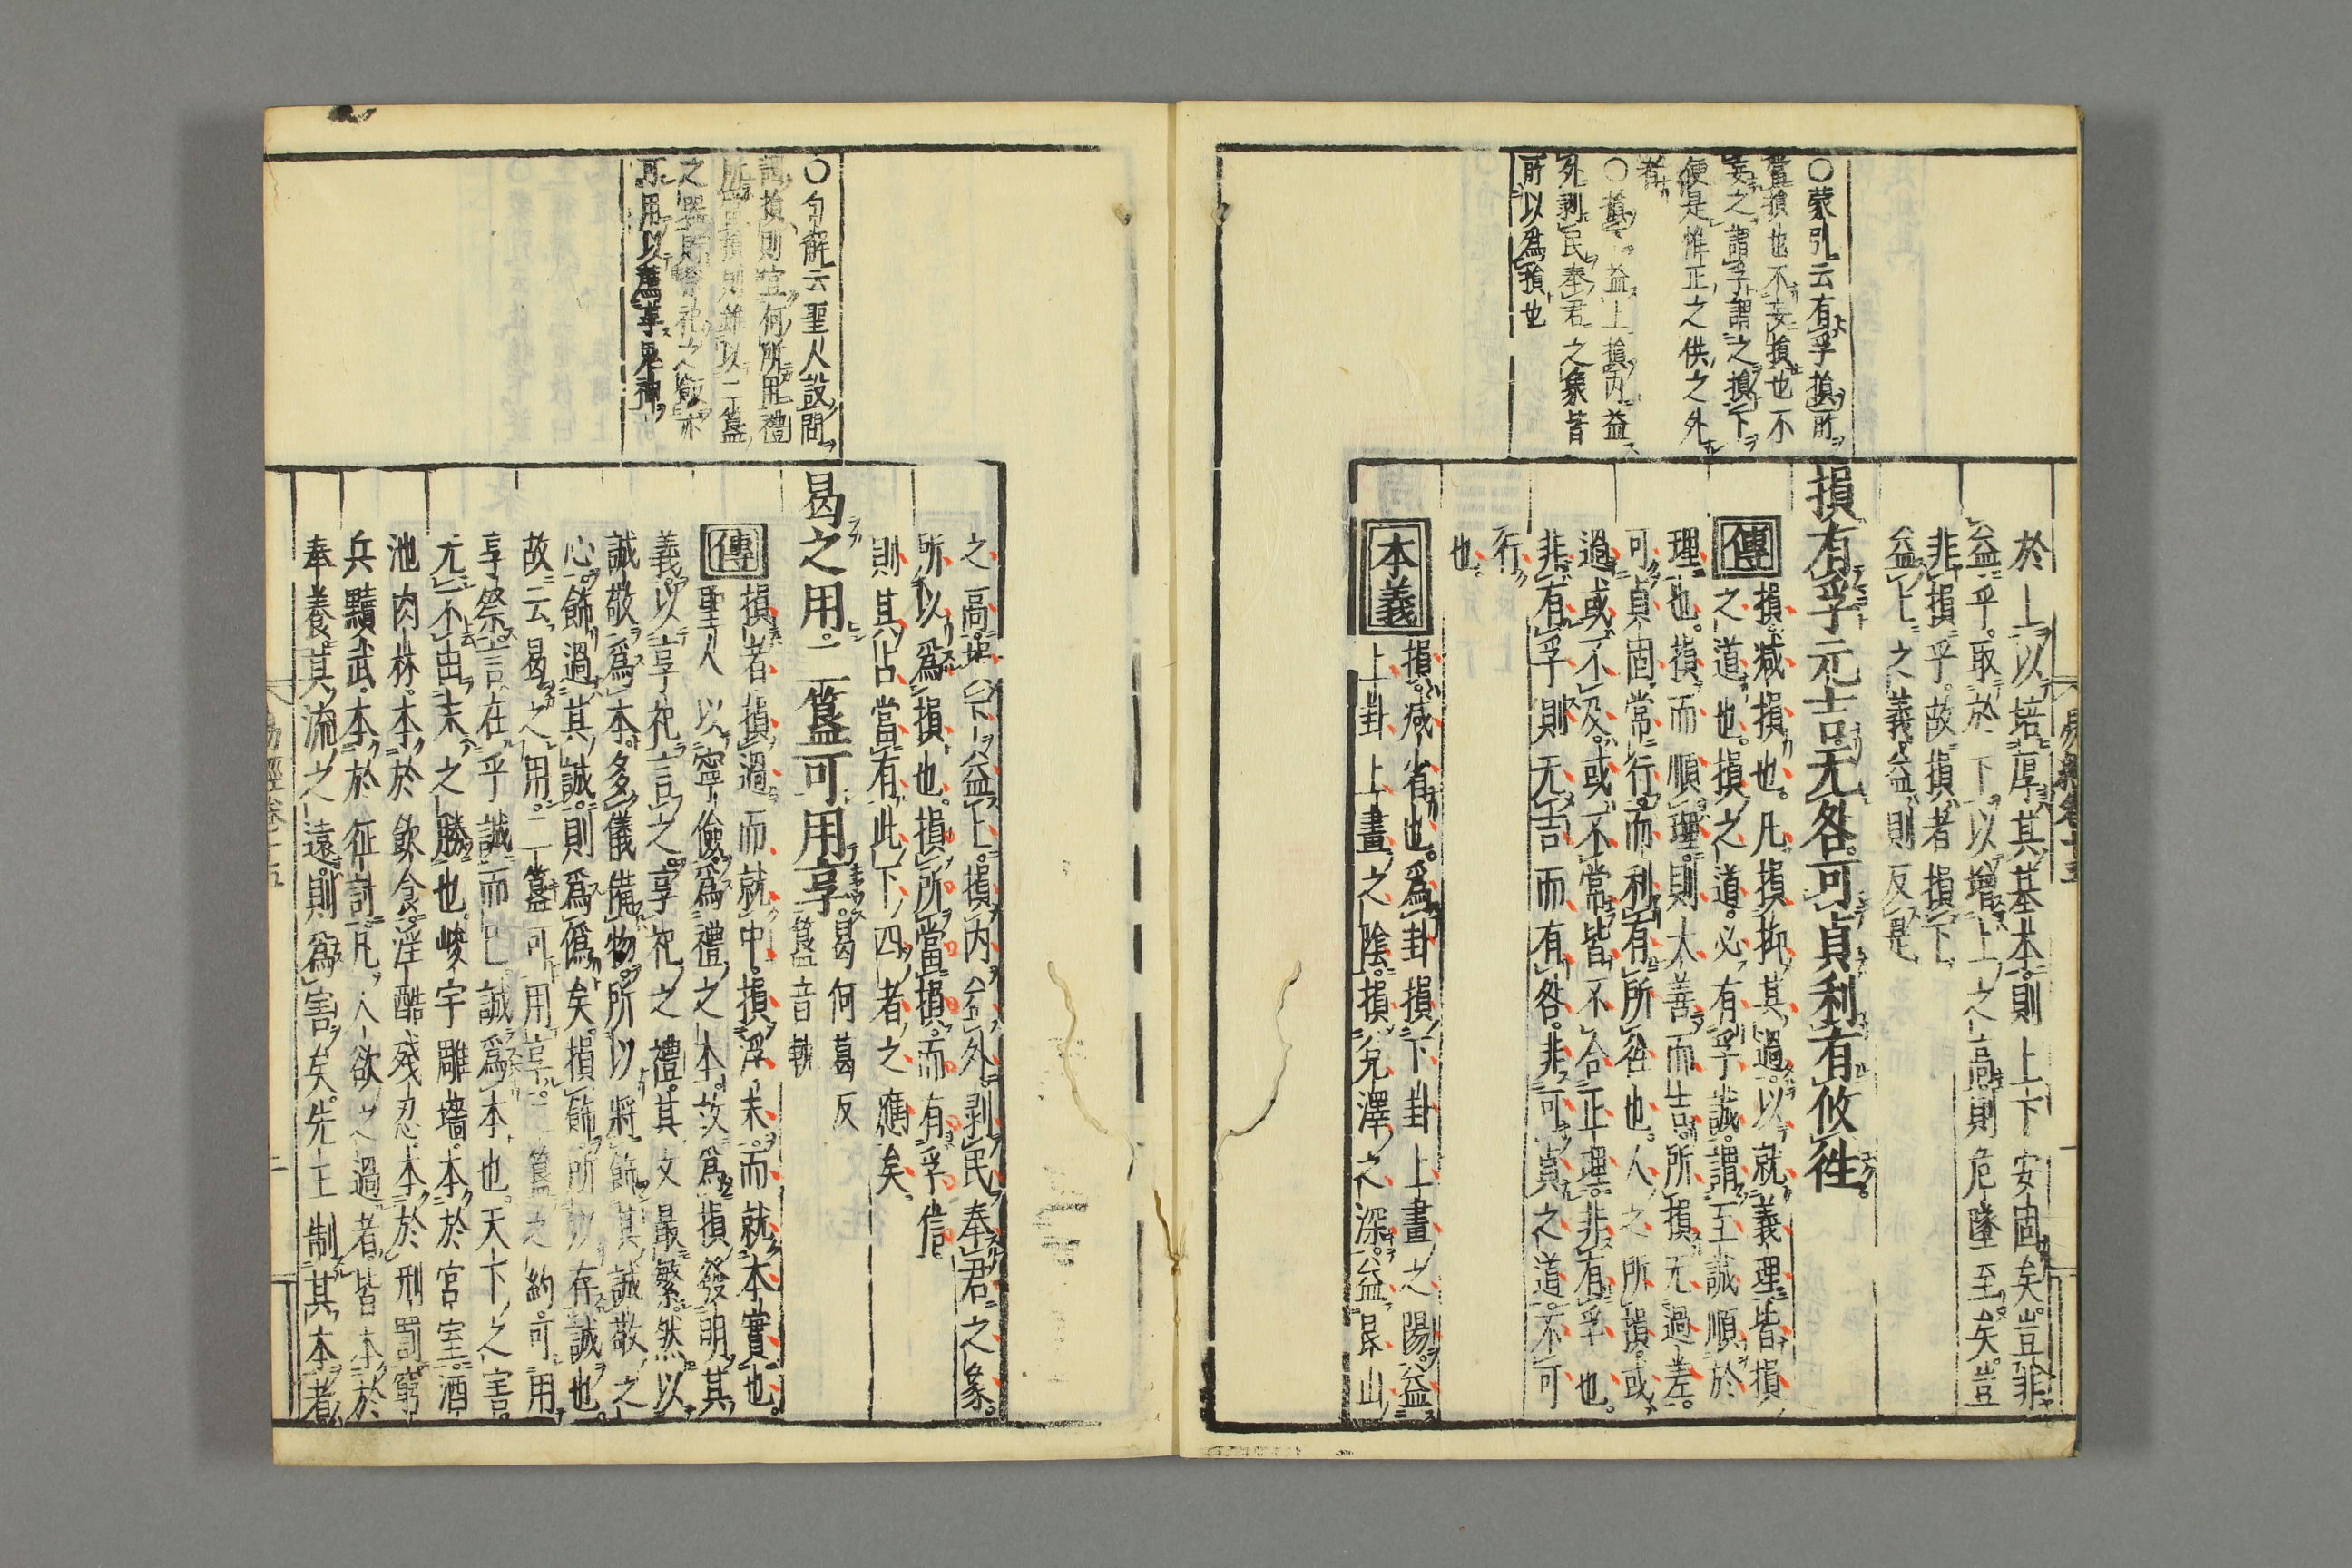 ○蒙引云有孚損所
當損也不妄損也不
妄之謂孚謂之損下
便是惟正之供之外
者
○損下益上損内益
外剥民奉君之象皆
所以為損也
易經卷十五
於上以培厚其基本則上下安固矣豈非
益乎取於下以增上之高則危墜至矣豈
非損乎故損者損下
益上之義益則反是
損有孚元吉无咎可貞利有攸往
傳損減損也凡損抑其過以就義理皆損
之道也損之道必有孚誠謂至誠順於
理也損而順理則大善而吉所損无過差
可貞固常行而利有所往也人之所損或
過或不及或不常皆不合正理非有孚也
非有孚則无吉而有咎非可貞之道不可
行
也
本義損減省也為卦損下卦上畫之陽益
上卦上畫之陰損兌澤之深益艮山
○句解云聖人設問
謂損則宜何所用禮
所當損則雖以二簋
之器則祭祀之儉亦
可用以薦享鬼神
之高損下益上損内益外剥民奉君之象
所以為損也損所當損而有孚信
則其占當有此下四者之應矣
曷之用二簋可用享曷何葛反
簋音軌
傳損者損過而就中損浮末而就本實也
聖人以寧儉為禮之本故為損發明其
義以享祀言之享祀之禮其文最繁然以
誠敬為本多儀備物所以將飾其誠敬之
心飾過其誠則為偽矣損飾所以存誠也
故云曷之用二簋可用享二簋之約可用
享祭言在乎誠而已誠為本也天下之害
无不由末之勝也峻宇雕墻本於宮室酒
池肉林本於飲食淫酷殘忍本於刑罰窮
兵黷武本於征討凡人欲之過者皆本於
奉養其流之遠則為害矣先王制其本者
易經卷十五
二